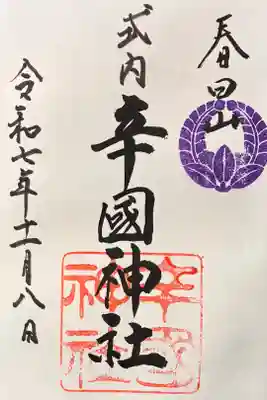 春日山
式内
辛國神社
辛國神社
令和七年十一月八日